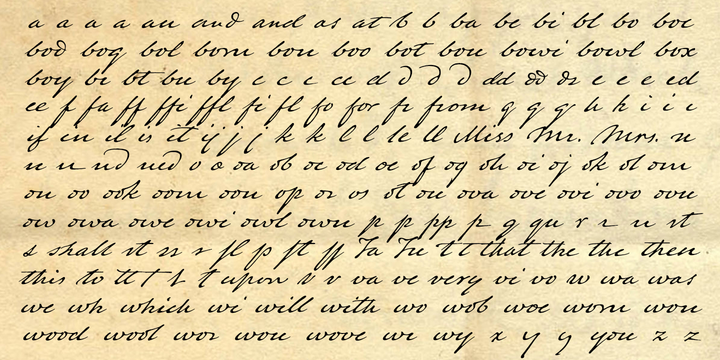 a a a a an and and as at b b ba be bi bl bo boc
bod bog bol bom bon boo bot bou bowi bowl box
boy br bt bu by c c c cc d d d d dd dd ds e e e ed
ee f fa ff ffi ffl fi fl fo for fr from g g g h h i i i
if in il is it ij j j k k l l le ll Miss Mr. Mrs. n
n n nd ned o o oa ob oc od oe of og oh oi oj ok ol om
on oo ook oom oon op or os ot ou ova ove ovi ovo ovu
ow owa owe owi owl own p p pp p q qu r r rt
s shall st ss fl p ft ff Ta Tu t t that the the then
this to tt t t upon v v va ve very vi vo w wa was
we wh which wi will with wo wob woe wom won
wood wool wor wou wove wr wy x y y you z z